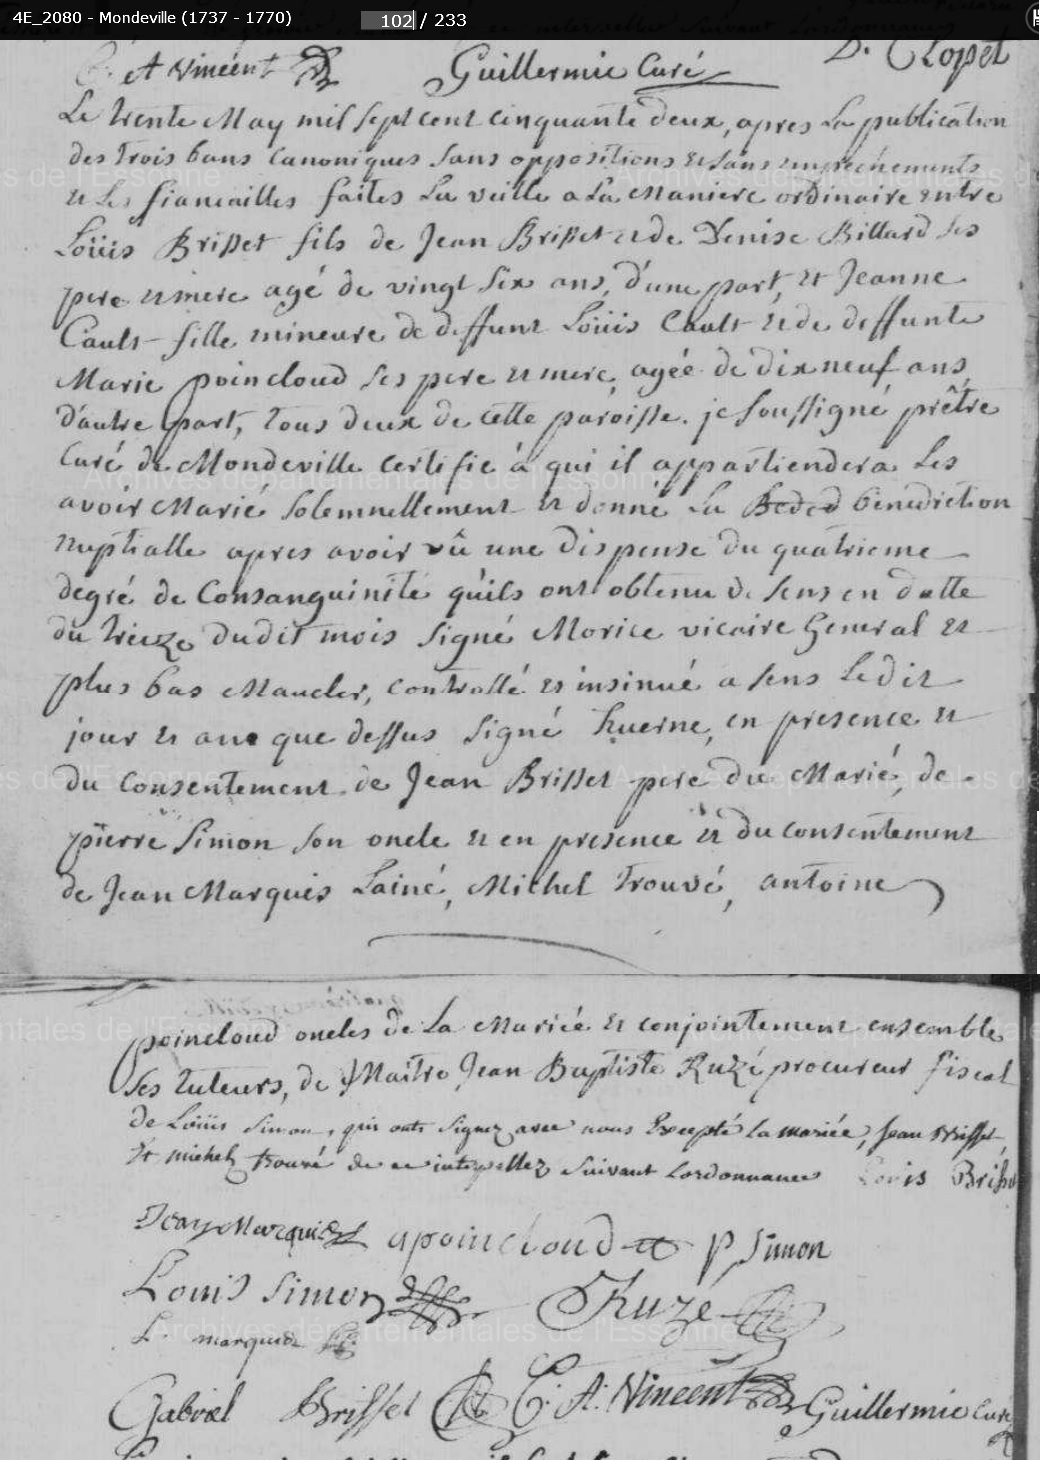 4E_2080 - Mondeville (1737 - 1770)
102 / 233
C. A Vincent Guillermie Curé D. Clopet
Le trente May mil sept cent cinquante deux, apres La publication
des trois bans Canoniques sans oppositions et sans empechements
et Les fiancailles faites La veille a La Maniere ordinaire entre
Loüis Brisset fils de Jean Brisset et de Denise Billard ses
pere et mere agé de vingt six ans, d'une part, et Jeanne
Cault fille mineure de deffunt Loüis Cault et de deffunte
Marie poincloud ses pere et mere, agée de dix neuf ans,
d'autre part, tous deux de cette paroisse. je soussigné prêtre
Curé de Mondeville Certifie à qui il appartiendera Les
avoir Marié solemnellement et donné La benediction
nuptialle apres avoir vû une Dispense du quatrieme
degré de Consanguinité qu'ils ont obtenu de sens en datte
du treize dudit mois signé Morice vicaire General et
plus bas Maucler, controllé et insinué a sens Ledit
jour et an que dessus signé huerne, en presence et
du Consentement de Jean Brisset pere du Marié, de
pierre Simon son oncle et en presence et du consentement
de Jean Marquis Lainé, Michel trouvé, antoine
poincloud oncles de La Mariée et conjointement ensemble
ses tuteurs, de Maitre Jean Baptiste Ruzé procureur fiscal
de Loüis Simon, qui ont signez avec nous Excepté la mariée, Jean Brisset,
Et michel trouvé de ce interpellez suivant Lordonnance Louis Brisset
Jean Marquis apoincloud P Simon
Louis Simon Ruzé
L. marquis
Gabriel Brisset C. A. Vincent Guillermie Curé
Archives départementales de l'Essonne